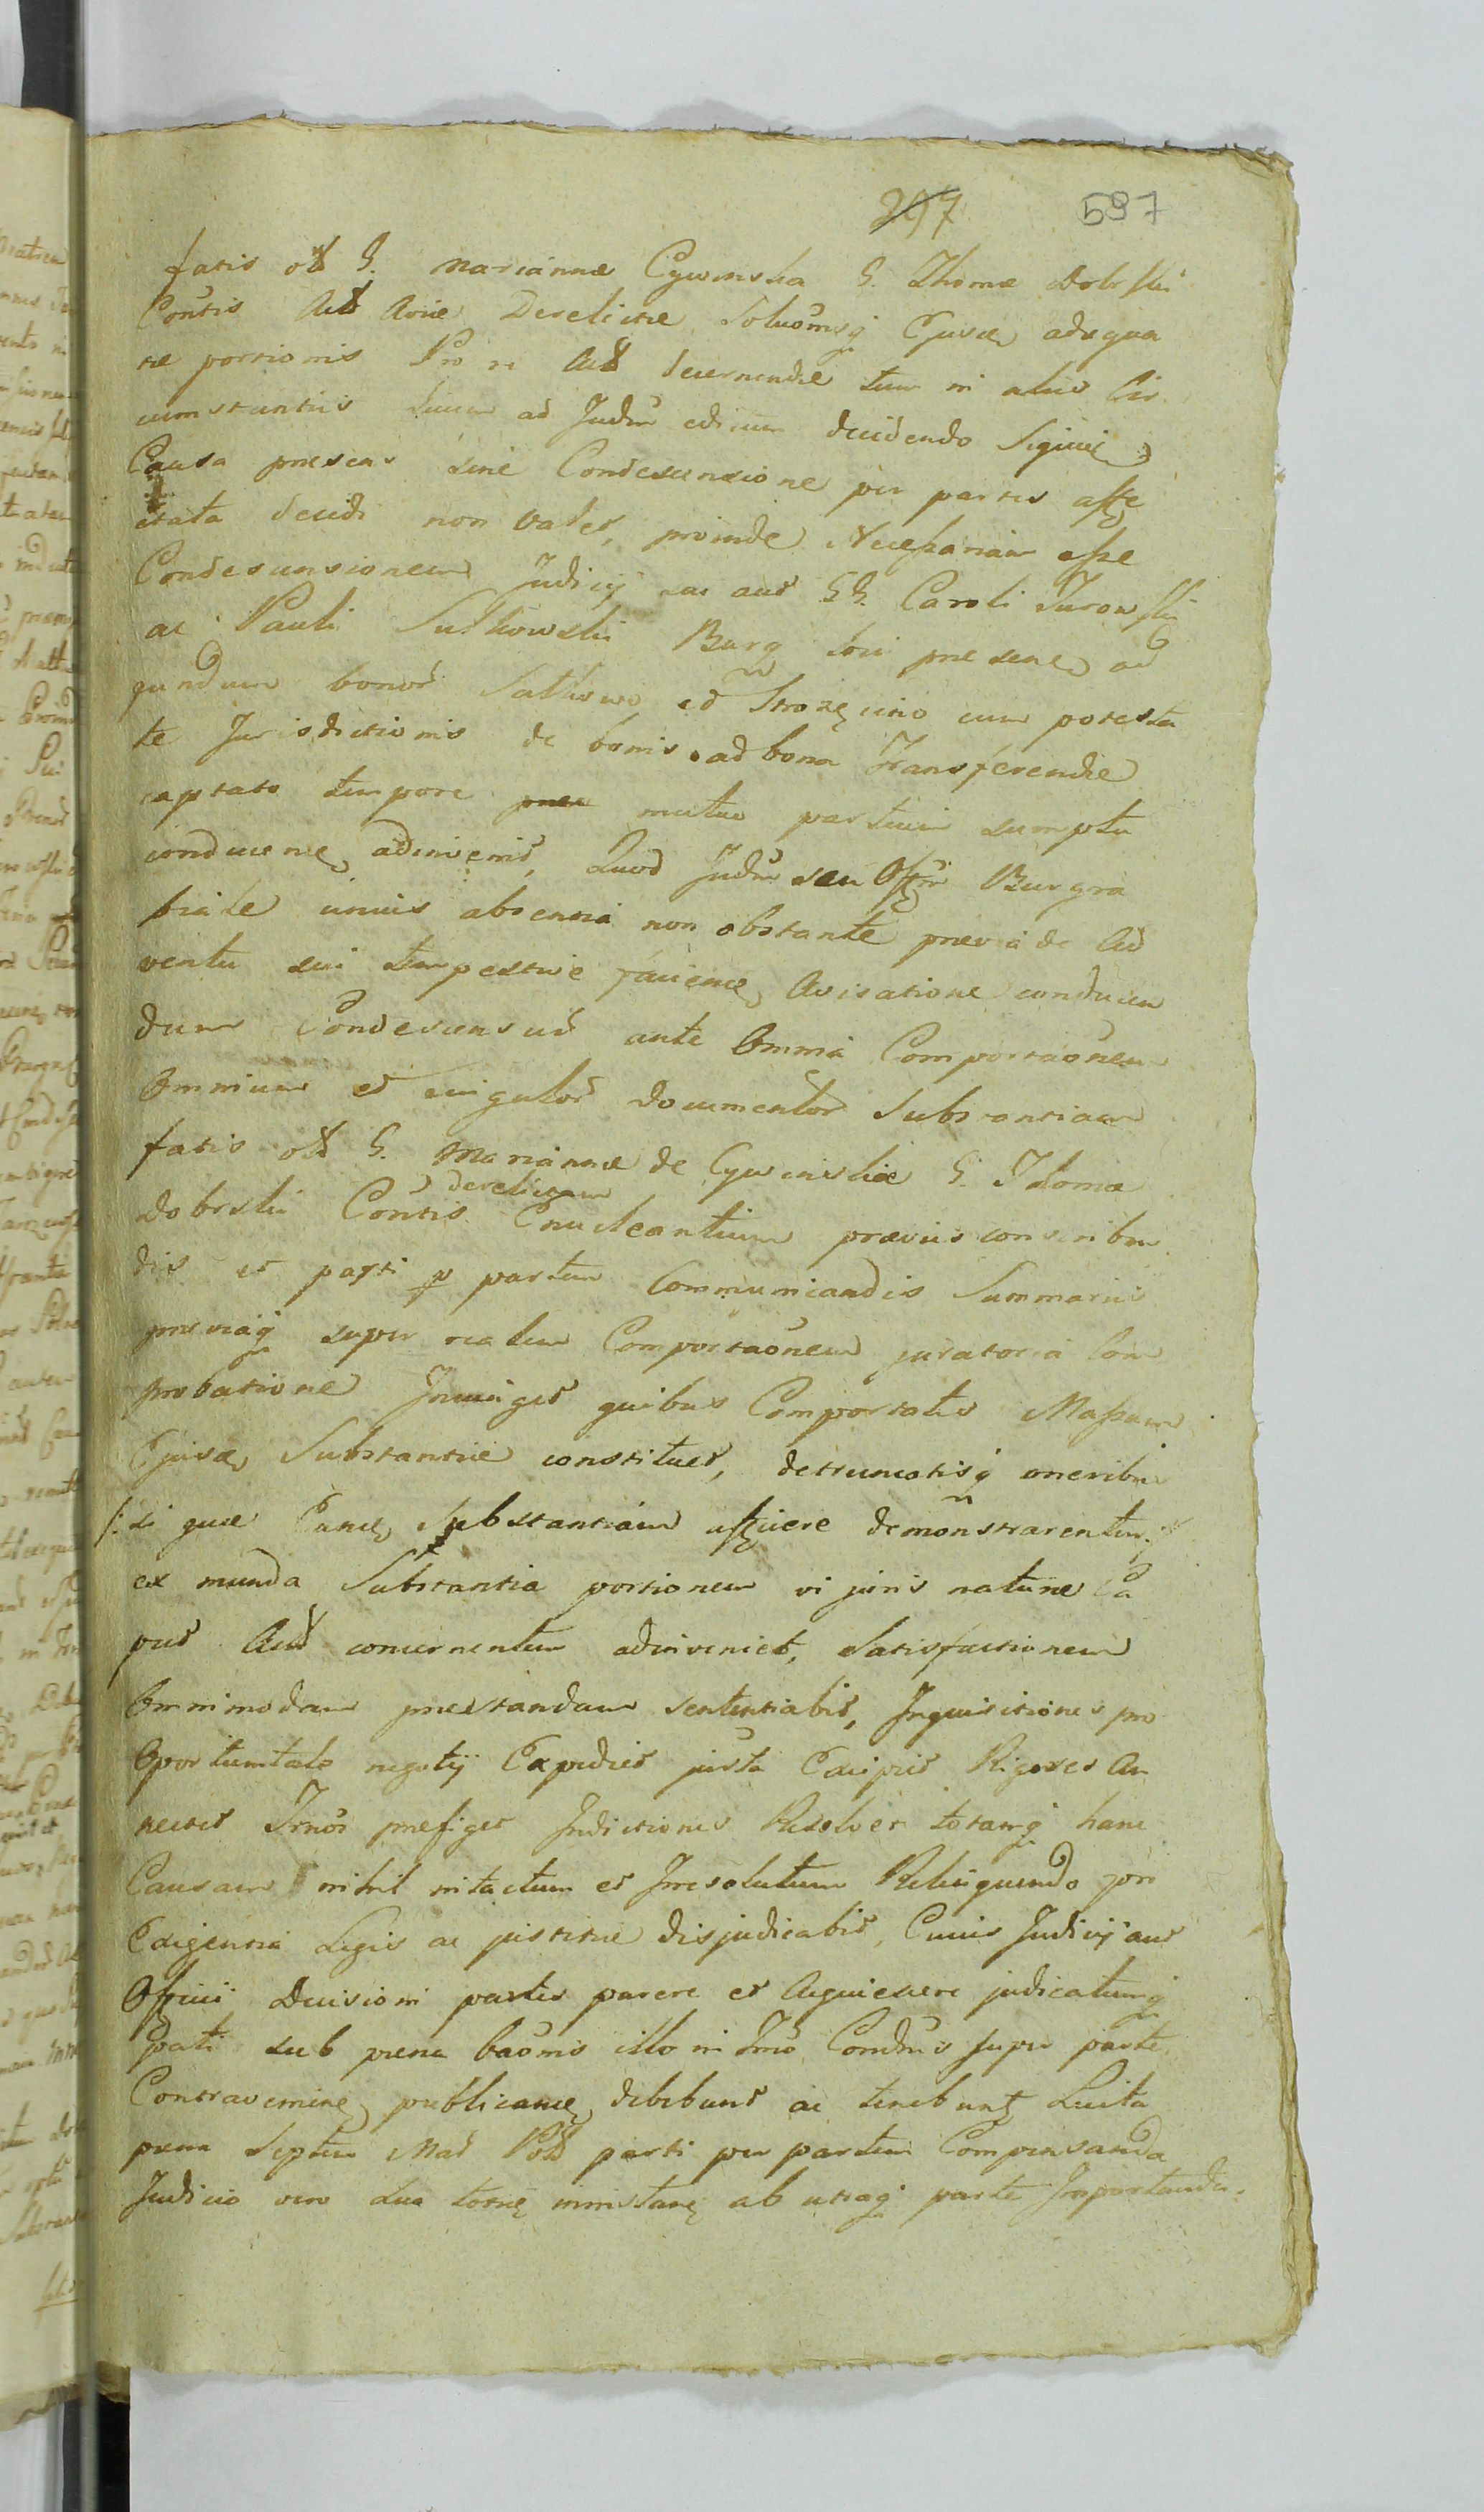 297 597
fatis olt G. Mariannæ Cywinska G. Thomæ Dobrski
Contis Act Avice Derelictæ Solvõmsq Ejusce adæqua
tæ portionis Pro re Act decernendæ tum in aliis Cir
cumstantiis Litem ad Judm edicium decidendo Siquie
Causa præsens sine Condescensione per partes affe
ctata decidi non valet, proinde Necessariam esse
Condescensionem Judicij sui aut GG. Caroli Turowski
ac Pauli Sutkowski Burg loci præsene ad
gundum bonor Sutkowo et Strozęcino cum potesta
te Jurisdictionis de bonis ad bona Transferendæ
captato tempore mutuo partium sumptu
conducene, adinvenit, Quod Judm seu Offm Burgra
biale unius absentia non obstante prævia de Ad
ventu sui tempestive faciene, Avisatione conducen
dum Condescensus ante Omnia Comportaõnem
Omnium et singulor documentor Substantiam
fatis olt G. Mariannæ de Cywinskie G. Thoma
derelictam
Dobrski Contis Enucleantium præviis conscriben
dis et parti p partem Communicandis Summariis
præviaq super realem Comportaõnem juratoria Com
probatione Injunget quibus Comportatis Massam
Ejusce Substantiæ constituet, detruncatisq oneribus
/: si quæ Eance Substantiam afficere demonstrarentur :/
ex munda Substantia portionem vi juris naturæ Ca
put Act concernentem adinveniet, Satisfactionem
Omnimodam præstandam sententiabit, Inquisitiones pro
Oportunitate negotij Expediet juxta Excipiet Rigores An
nectet Trnos præfiget Indictiones Resolvet totamq hanc
Causam nihil intactum et Irresolutum Relinquendo pro
Exigentia Legis ac justitiæ disjudicabit, Cuius Judicij aut
Officii Decisioni partes parere et Acquiescere judicatumq
pati sub pæna baõnis illo in Trno Condnis super parte
Contraveniene, publicance, debebunt ac tenebunt Luita
pæna Septem Mar Pol parti per partem Compensanda
Judicio vero dua totnę innistanę ab utraq parte Importanda.